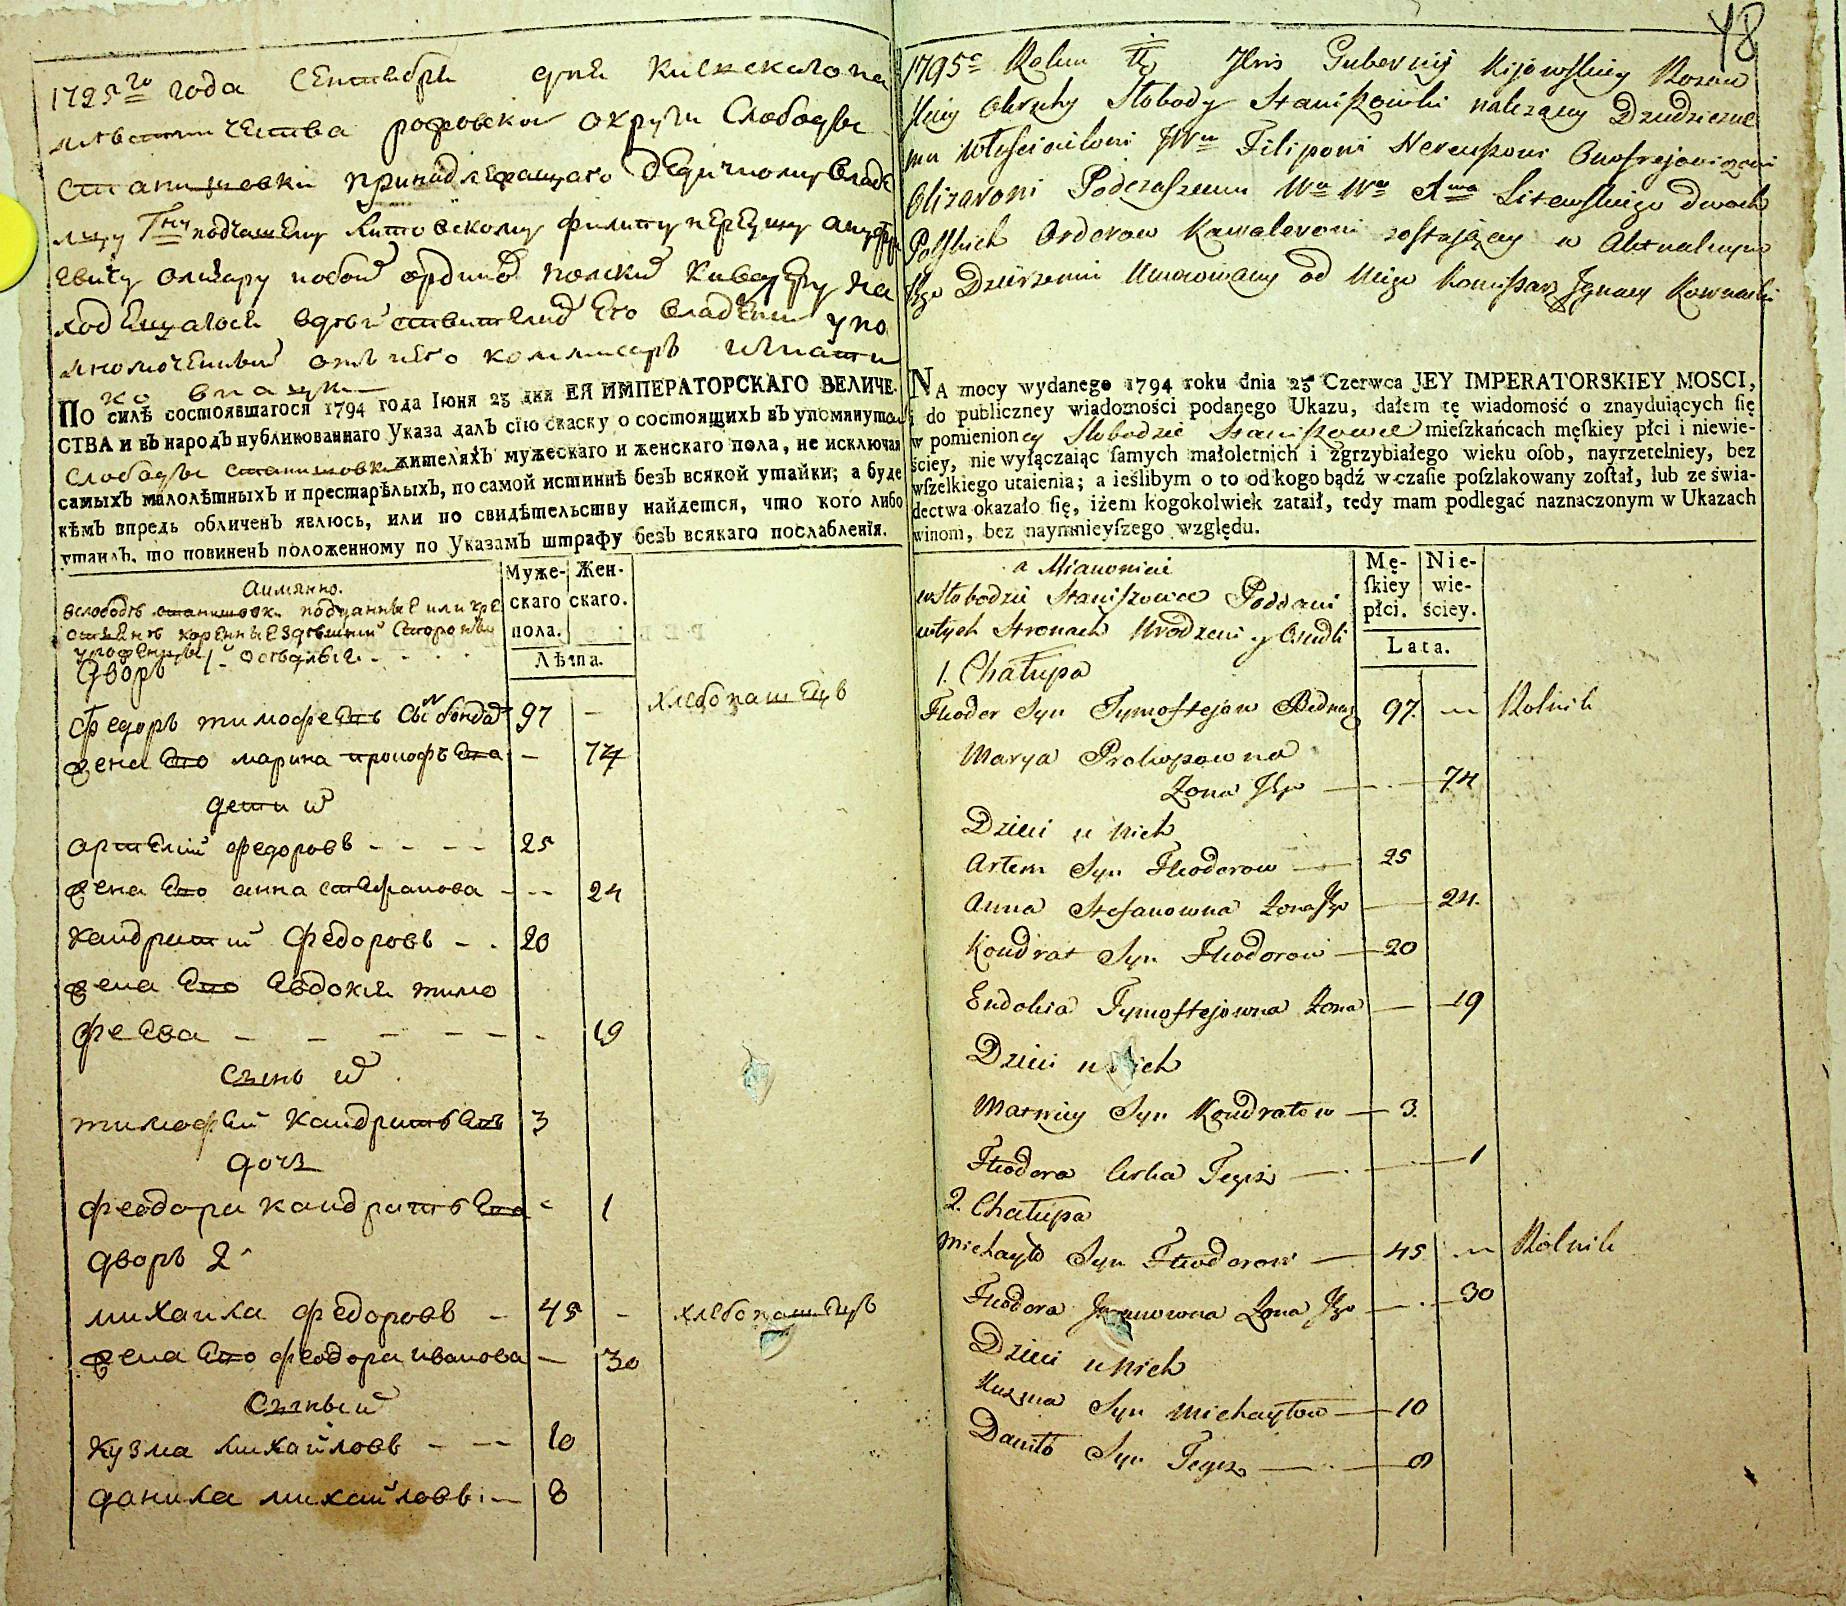 48
1795го года Сентября дня Киевскаго на
местничества рофовской округи Слободы
Станишовки принадлежащаго Дедичному владе
лцу подчашему Литовскому Филипу Нереушу ануфри
евичу олизару побои ордино полски Кавалеру на
ходящагося вдействителной его владении упо
лномоченный отъ него коммисаръ игнати
ко вна
По силѣ состоявшагося 1794 года Iюня 23 дня ЕЯ ИМПЕРАТОРСКАГО ВЕЛИЧЕ-
СТВА и въ народъ публикованнаго Указа далъ сiю скаску о состоящихъ въ упомянутой
Слободы Станишовки жителяхъ мужескаго и женскаго пола, не исключая
самыхъ малолѣтныхъ и престарѣлыхъ, по самой истиннѣ безъ всякой утайки; а буде
кѣмъ впредь обличенъ явлюсь, или по свидѣтельству найдется, что кого либо
утаилъ, то повиненъ положенному по Указамъ штрафу безъ всякаго послабленiя.
Муже-
скаго
пола.
Жен-
скаго.
Лѣта.
аимянно.
вслободѣ станишовки подданные или кре
стьянъ коренные здешний Стороны
урожденцы осѣдлые
Дворъ 1й
Федоръ тимофеевъ Сын бондар 97 - хлебопашецъ
жена его марина прокофьева - 74
дети их
артемий федоровъ - - - - 25
жена его анна стефанова - -- 24
кандратий федоровъ - . 20
жена его Евдокия тимо
феева - - - - - - - 19
Сынъ их
тимофей кандратьевъ 3
дочь
феодора кандратьева - 1
дворъ 2й
михаила федоровъ - 45 - хлебопашецъ
жена его феодора иванова - 30
Сыны их
кузма михайловъ - -- 10
данила михайловъ - 8
1795o Roku Dnia Gubernij Kijowskiey Rozow
skiey okruhy Słobody Staniszowki należący Dziedziczne
mu Właścicielowi JWu Filipowi Nereuszowi Onofrejowiczowi
Olizarowi Podczaszemu Wo Wo Xwa Litewskiego dwoch
Polskich Orderow Kawalerowi zostaiący w Aktualnym
Jego Dzierżeniu Umocowany od Niego Komissarz Ignacy Kownacki
NA mocy wydanego 1794 roku dnia 23 Czerwca JEY IMPERATORSKIEY MOSCI,
i do publiczney wiadomości podanego Ukazu, dałem tę wiadomość o znayduiących ſię
w pomienioney Słobodzie Staniszowce mieſzkańcach męſkiey płci i niewie-
ściey, nie wyłączaiąc ſamych małoletnich i zgrzybiałego wieku oſob, nayrzetelniey, bez
wſzelkiego utaienia; a ieślibym o to od kogo bądź w czaſie poſzlakowany zoſtał, lub ze świa-
dectwa okazało ſię, iżem kogokolwiek zataił, tedy mam podlegać naznaczonym w Ukazach
winom, bez naymnieyſzego względu.
Mę-
ſkiey
płci.
Nie-
wie-
ściey.
Lata.
a Mianowicie
w Słobodzie Staniszowce Poddani
w tych Stronach Urodzeni y Osiedli
1. Chałupa
Fteoder Syn Tymoftejow Bednarz 97. -- Rolnik
Marya Prokopowna
Zona Jego - . - 74
Dzieci u nich
Artem Syn Fteodorow - 25
Anna Stefanowna Zona Jego - 24.
Kondrat Syn Fteodorow - 20
Eudokia Tymoftejowna Zona - 19
Dzieci u nich
Syn Kondratow - 3.
Fteodora Corka Tegoż - . - 1
2. Chałupa
Michayło Syn Fteodorow - 45 -- Rolnik
Fteodora Jwanowna Zona Jego - . - 30
Dzieci u nich
Kuzma Syn Michayłow - 10
Daniło Syn Tegoż - . - 8